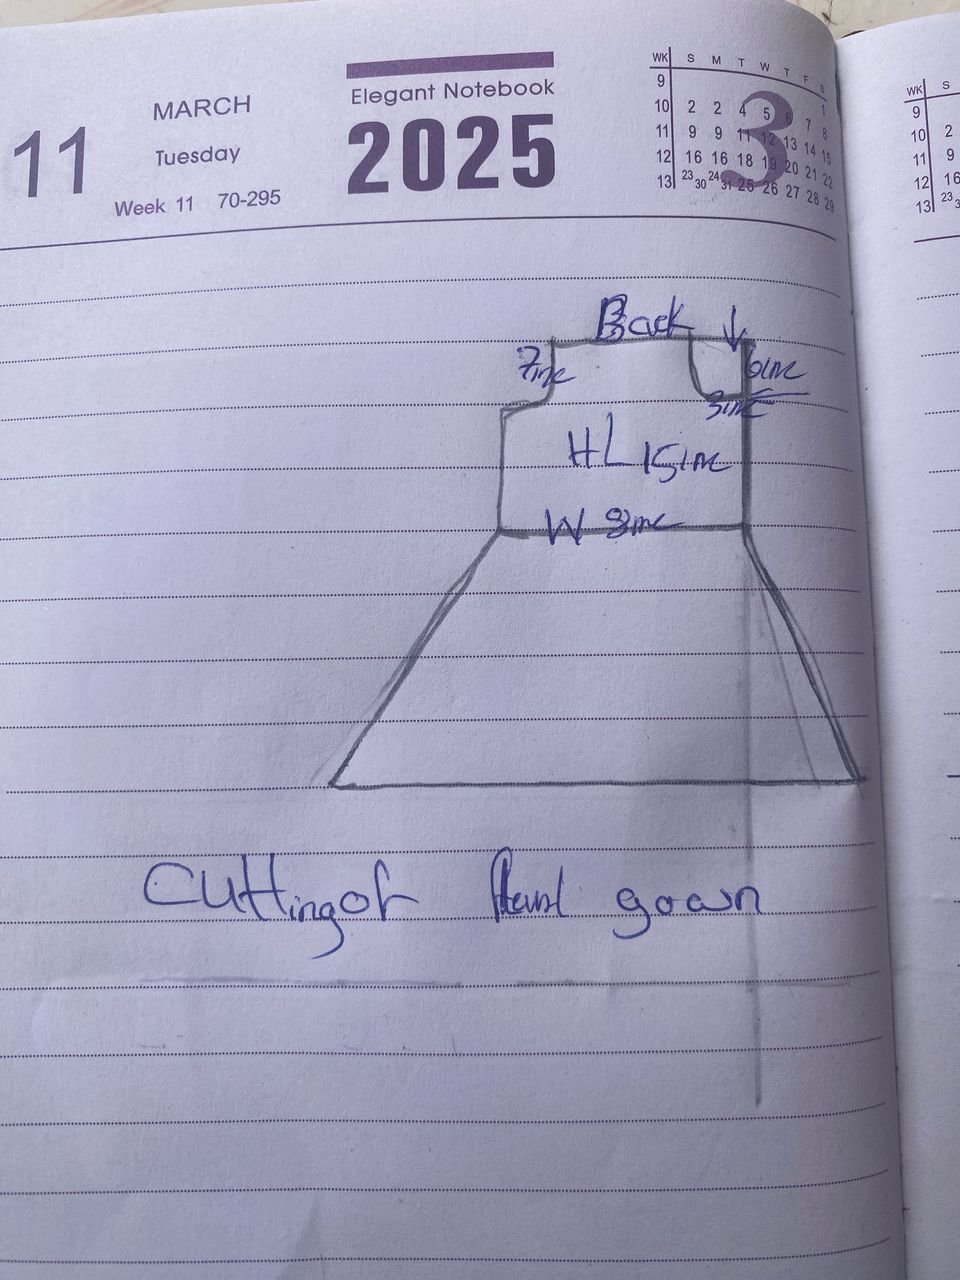 MARCH
11
Tuesday
Week 11 70-295
Elegant Notebook
2025
3
WK S M T W T F S
9 1
10 2 2 4 5 6 7 8
11 9 9 11 12 13 14 15
12 16 16 18 19 20 21 22
13 23 30 24 31 25 26 27 28 29
WK S
9
10 2
11 9
12 16
13 23
Back
7inc
6inc
3inc
HL 15inc
W 8inc
Cutting of gown